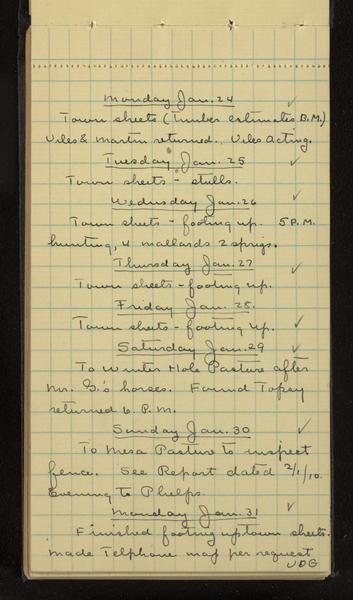 Monday Jan. 24
Town sheets (Timber estimates B.M.)
Viles & Martin returned. Viles Acting.
Tuesday Jan. 25
Town sheets - stulls.
Wednesday Jan. 26
Town sheets - footing up. 5 P.M.
hunting, 4 mallards 2 sprigs.
Thursday Jan. 27
Town sheets - footing up.
Friday Jan. 28.
Town sheets - footing up.
Saturday Jan. 29
To Winter Hole Pasture after
Mr. G.'s horses. Found Topsy
returned 6 P.M.
Sunday Jan. 30
To Mesa Pasture to inspect
fence. See Report dated 2/1/10.
Evening to Phelps.
Monday Jan. 31
Finished footing up town sheets.
Made Telphone map per request